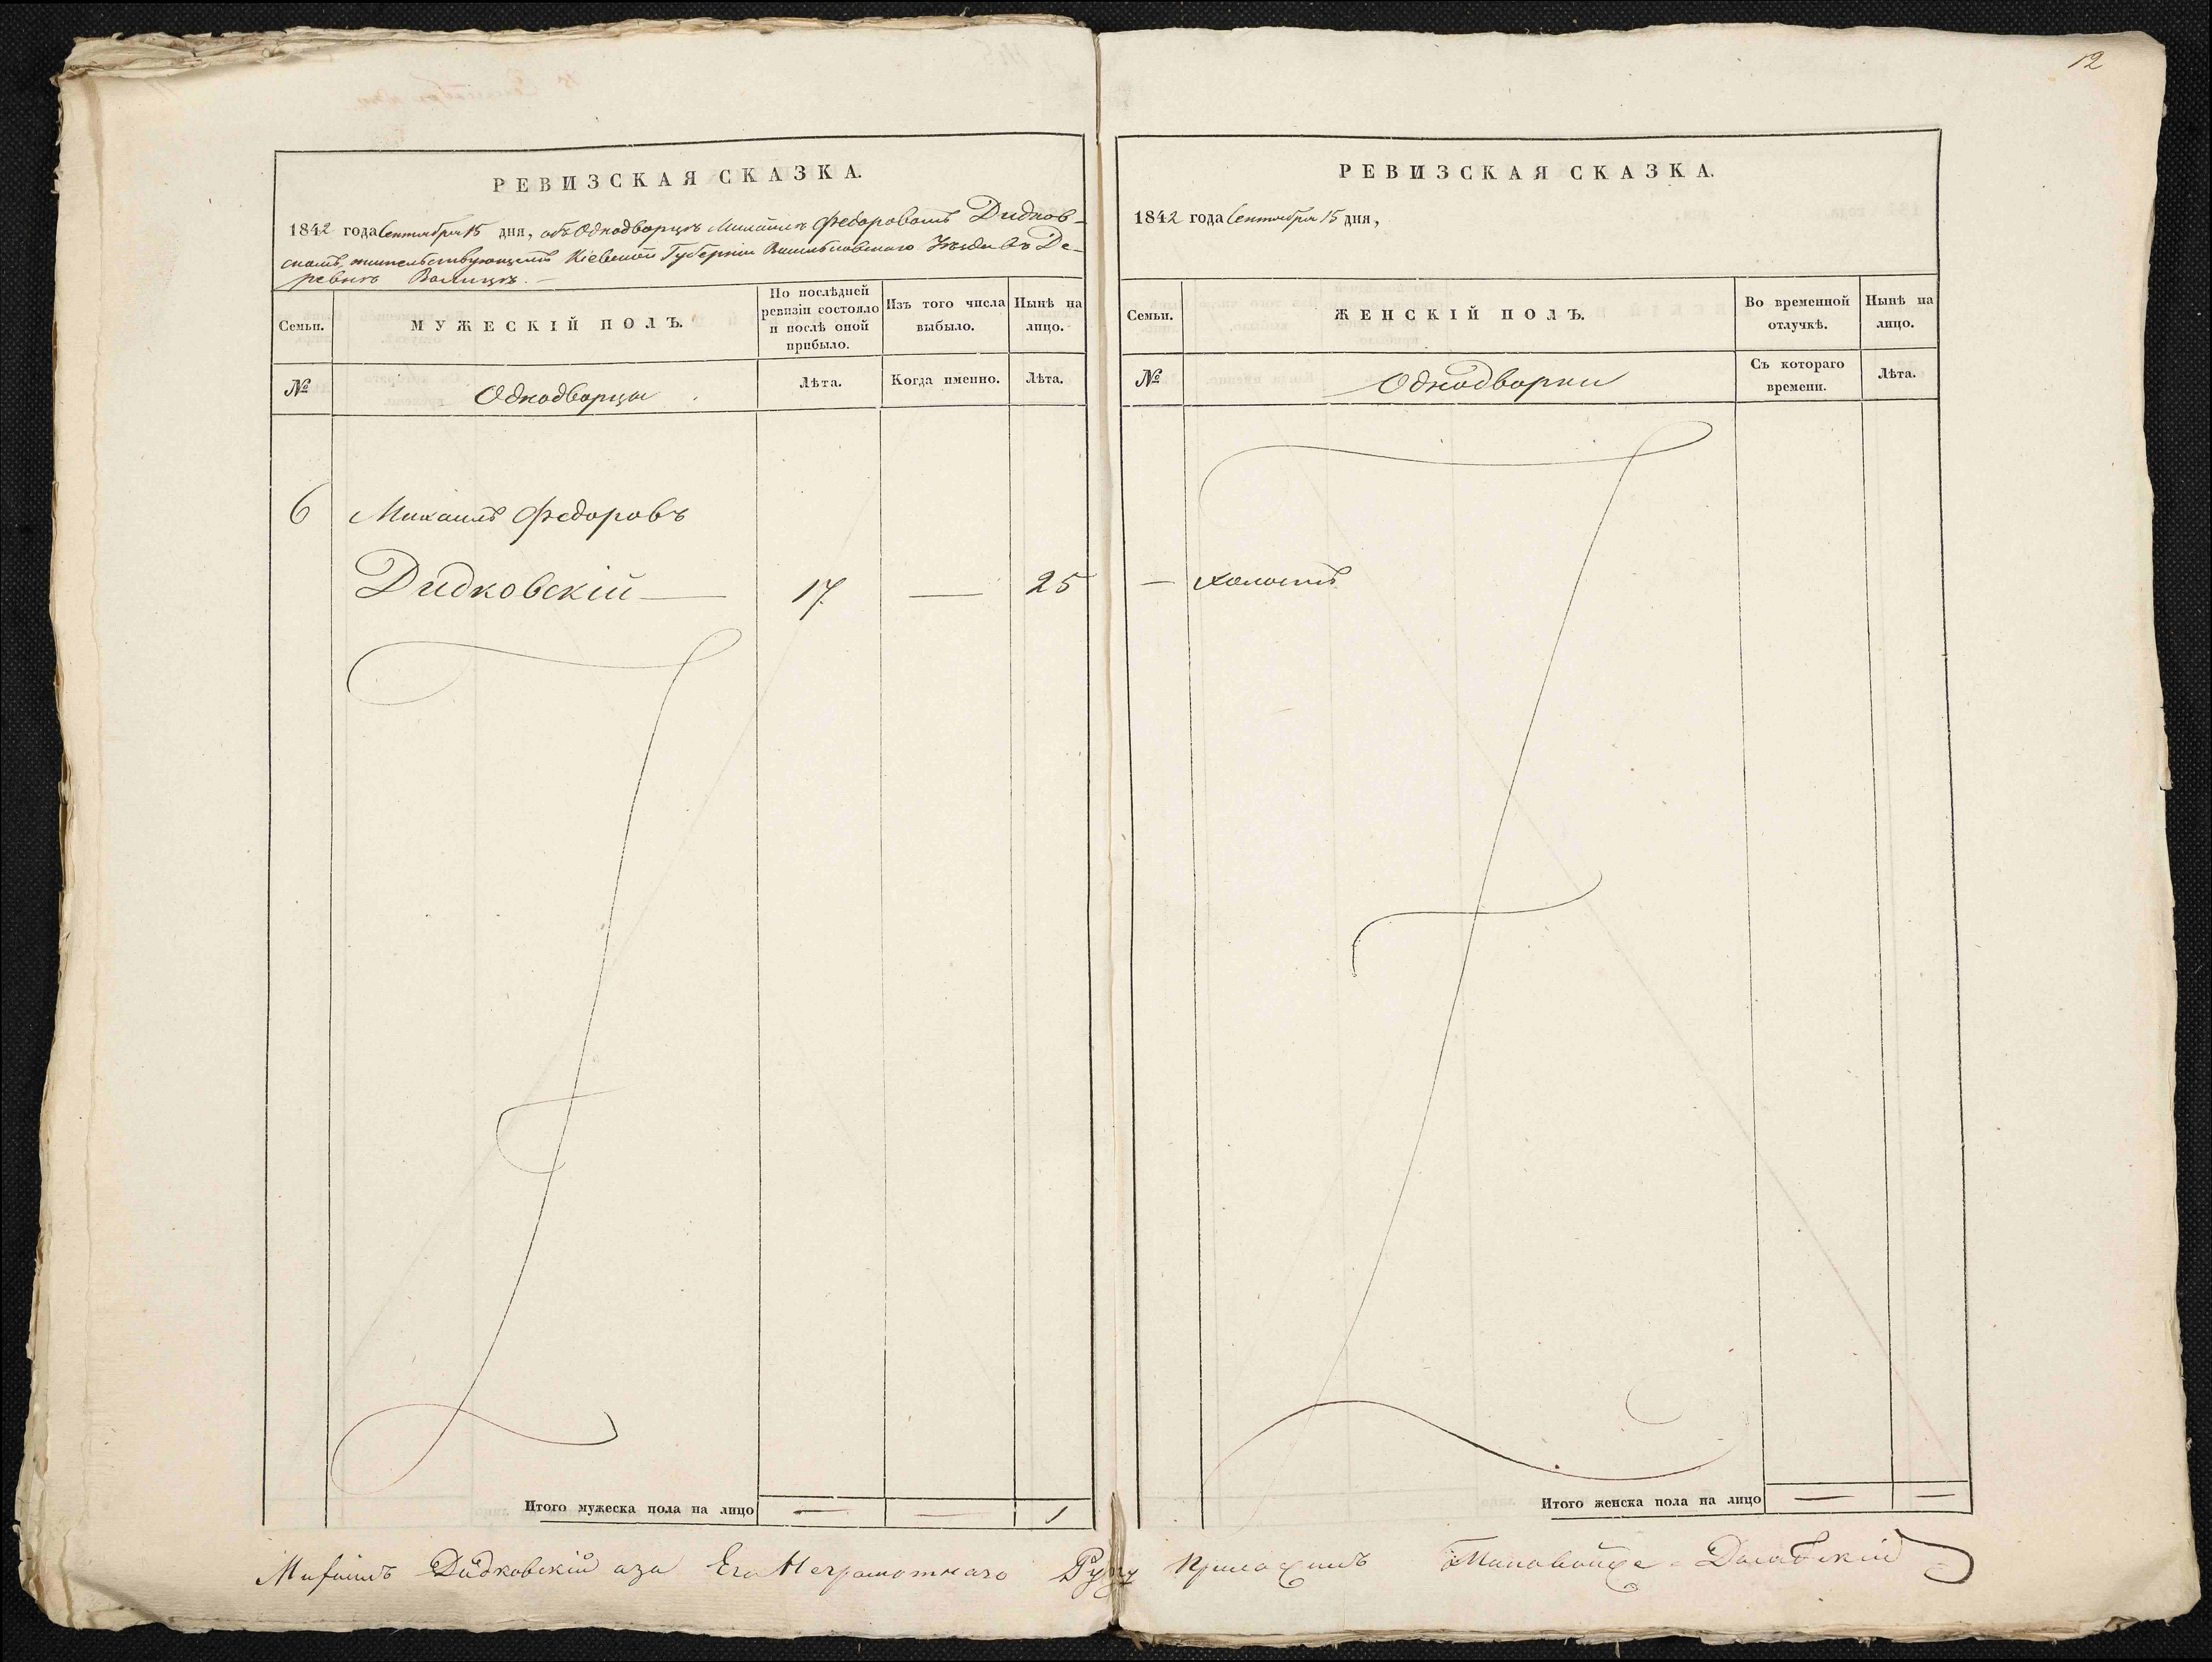 12
РЕВИЗСКАЯ СКАЗКА.
1842 года Сентября 15 дня, объ Однодворцѣ Михайлѣ Федоровомъ Дидков-
скомъ, жительствующемъ Кіевской Губерніи Васильковскаго Уѣзда въ Де-
ревнѣ Волицѣ. —
Семьи.
МУЖЕСКІЙ ПОЛЪ.
По послѣдней
ревизіи состояло
и послѣ оной
прибыло.
Изъ того числа
выбыло.
Нынѣ на
лицо.
№
Однодворцы
Лѣта.
Когда именно.
Лѣта.
6 Михаилъ Федоровъ
Дидковскій — 17 — 25
Итого мужеска пола на лицо — — 1
РЕВИЗСКАЯ СКАЗКА.
1842 года Сентября 15 дня,
Семьи.
ЖЕНСКІЙ ПОЛЪ.
Во временной
отлучкѣ.
Нынѣ на
лицо.
№
Однодворки
Съ котораго
времени.
Лѣта.
— холостъ
Итого женска пола на лицо — —
Дидковскій аза Его Неграмотнаго Руку Приложилъ